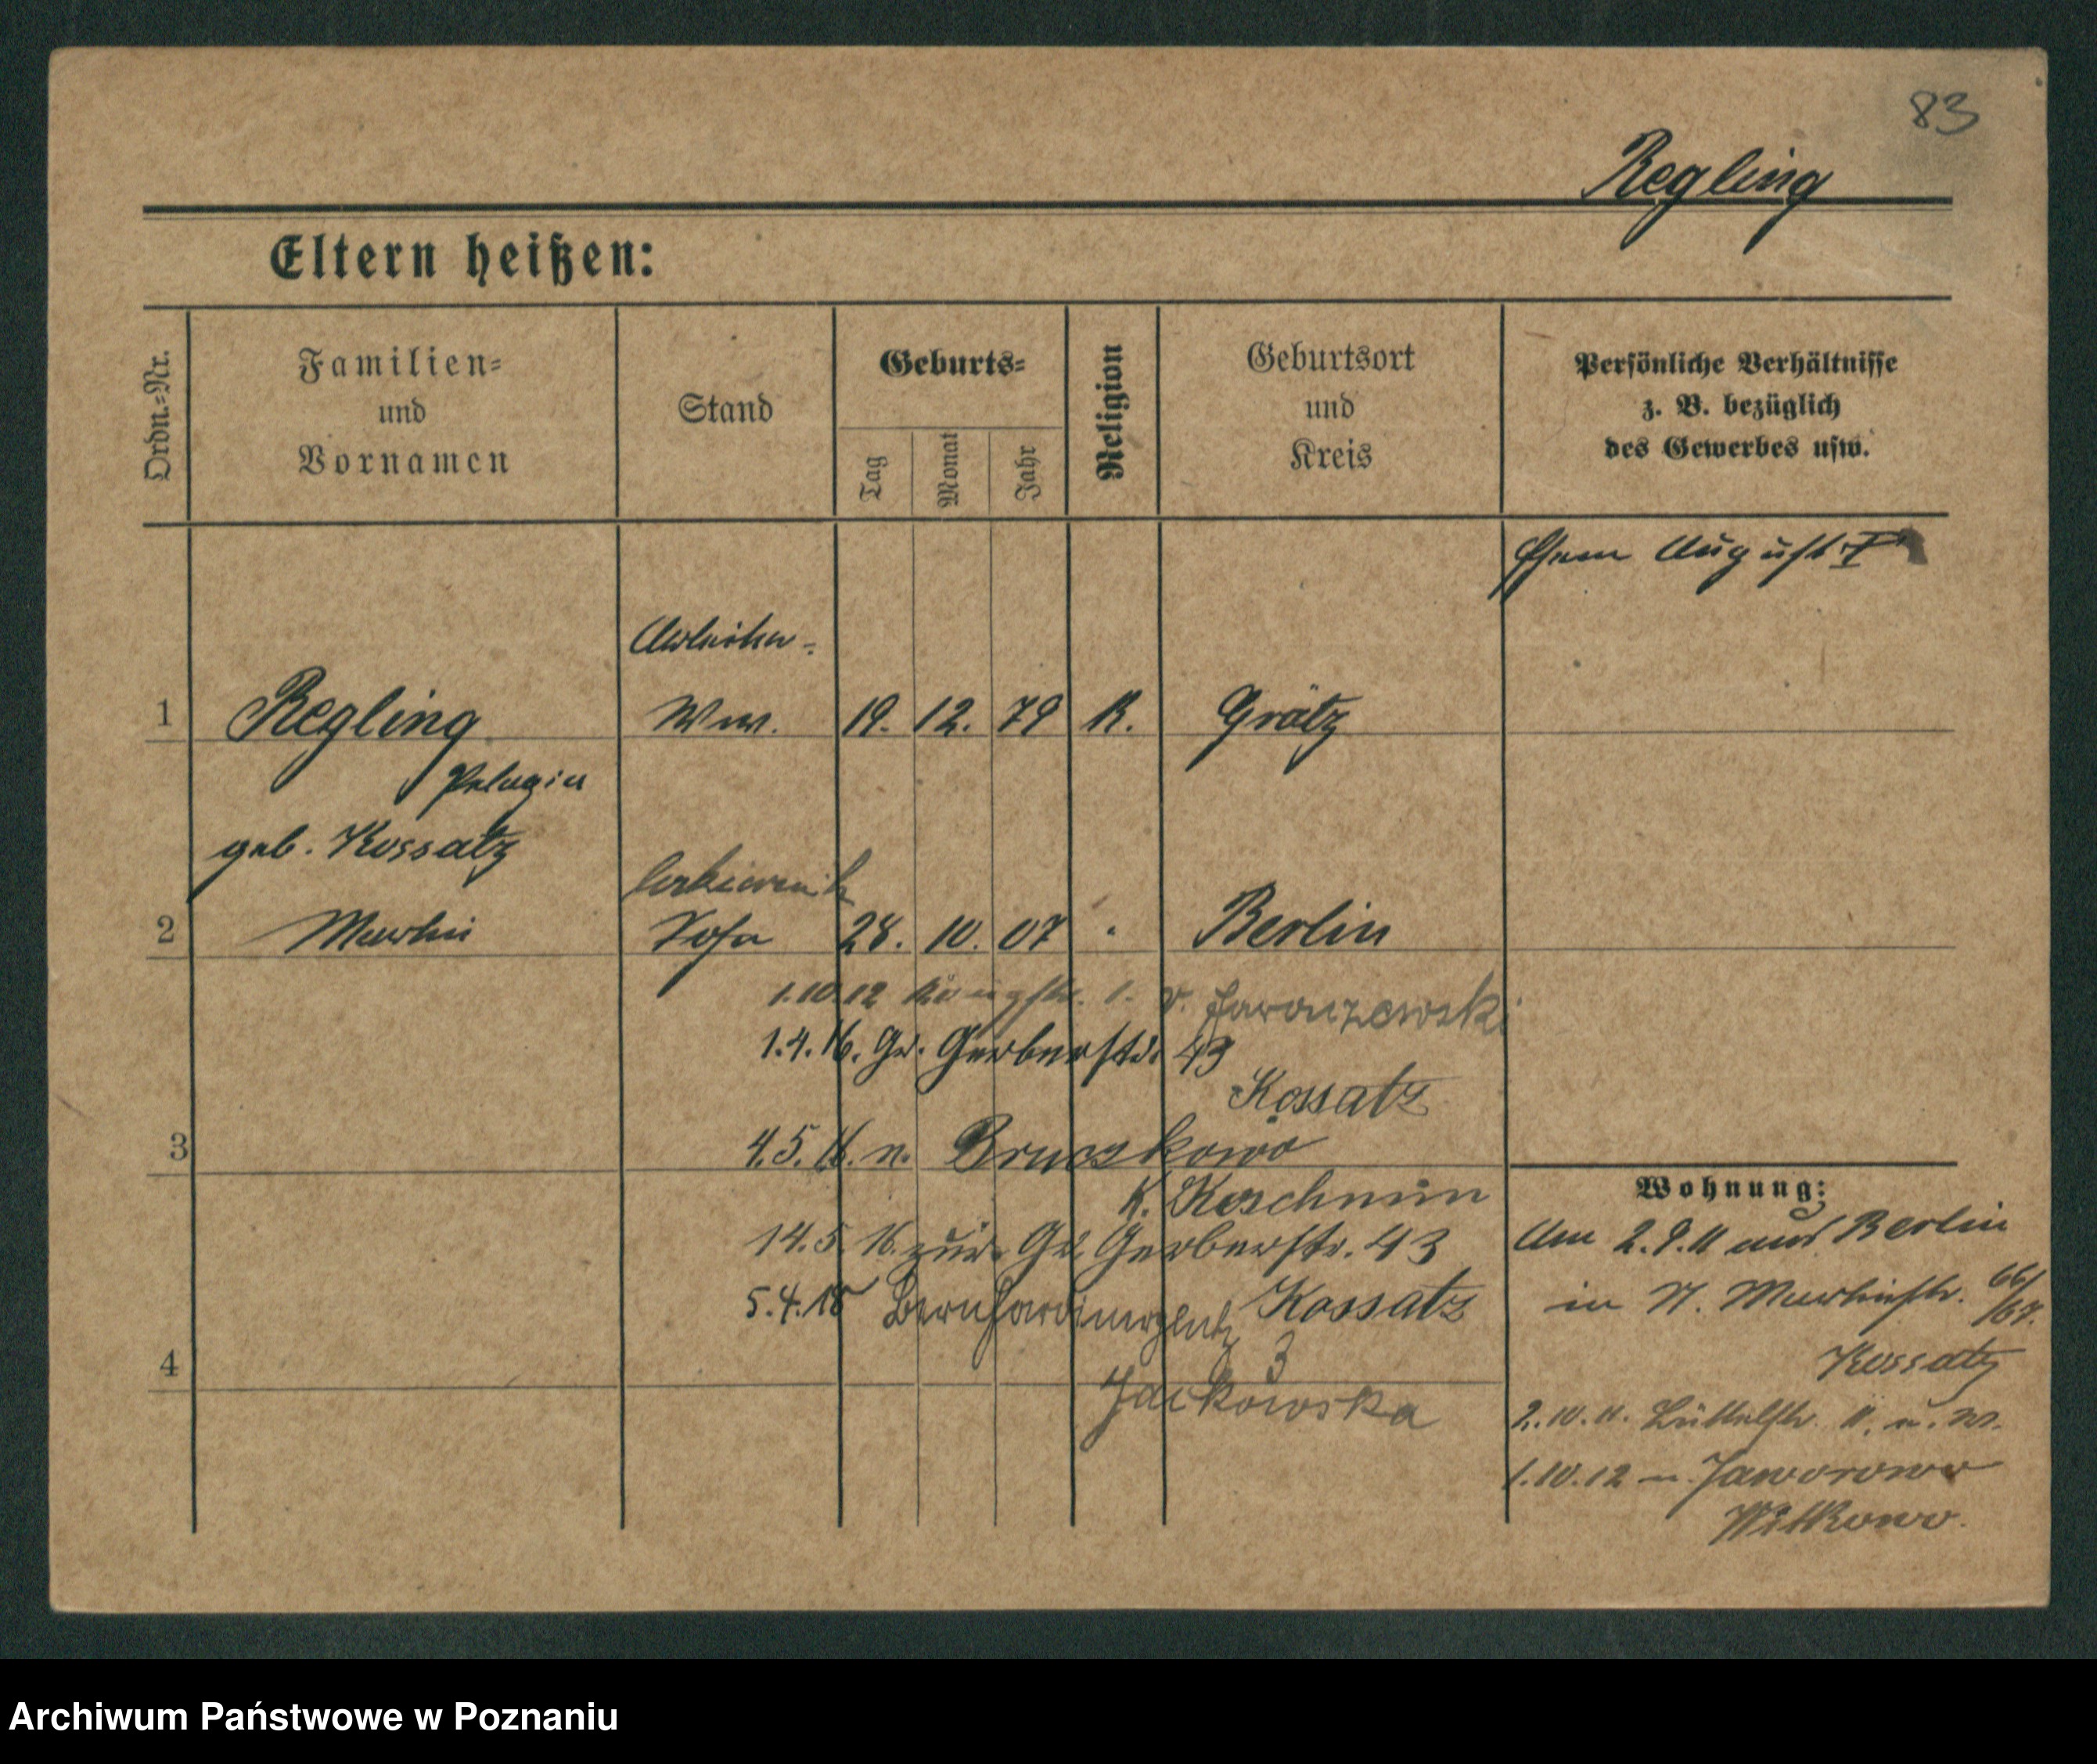 83
Regling
Eltern heißen:
Ordn.=Nr.
Familien=
und
Vornamen
Stand
Geburts=
Tag
Monat
Jahr
Religion
Geburtsort
und
Kreis
Persönliche Verhältnisse
z. B. bezüglich
des Gewerbes usw.
Ehem August I
Arbeiter-
1 Regling Ww. 19. 12. 79 K. Grätz
Pelagia
geb. Kossatz
2 28. 10. 07 Berlin
1.10.12 Königstr. 1. v. Jaronzewski
1.4.16. Gr. Gerberstr. 43
Kossatz
3 4.5.16. n. Bruczkowo
K. Koschmin
14.5.16. zur. Gr. Gerberstr. 43
5.4.18 Bernhardinerplatz Kossatz
3
4 Jackowska
Wohnung:
Am 2.9.11 aus Berlin
in 66/67.
Kossatz
2.10.11. 11. u. W.
1.10.12 n. Jaworowo
Witkowo.
Archiwum Państwowe w Poznaniu